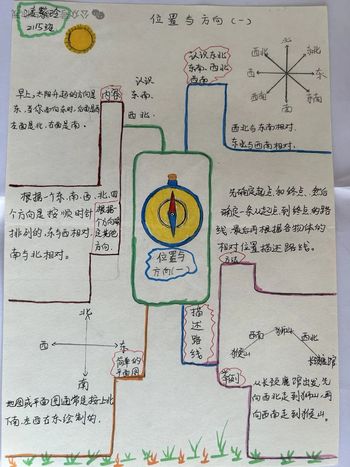 2115班
位置与方向(一)
早上,太阳升起的方向是
东,当你面向东时,后面是西
左面是北,右面是南。
内容
认识
东、南、
西、北.
认识东北、
东南、西北
西南
北
西北
东北
西
东
西南
东南
南
西北与东南相对.
东北与西南相对.
根据一个东、南、西、北、四
个方向是按顺时针
排列的,东与西相对,
南与北相对。
根据
一个方向
确定其他
方向.
位置与
方向(一)
先确定起点和终点,然后
确定一条从起点到终点的路
线,最后再根据各物体的
相对位置描述路线。
方法
描
述
路
线
北
西
东
南
简单的
平面图
地图或平面图通常是按上北
下南,左西右东绘制的.
狮山
西南
西北
猴山
长颈鹿馆
举例
从长颈鹿馆出发,先
向西北走到狮山,再
向西南走到猴山。